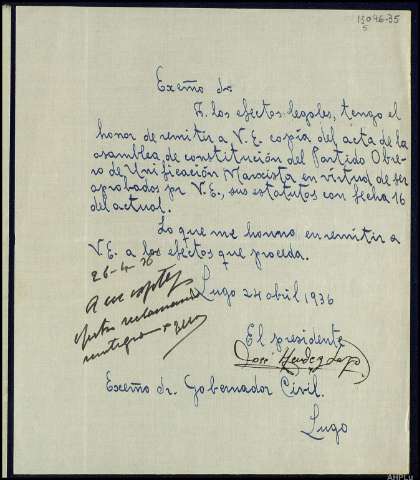 13096-35
5
Excmo Sr.
A los efectos legales, tengo el
honor de remitir a V.E. copia del acta de la
asamblea de constitución del Partido Obre-
ro de Unificación Marxista en virtud de ser
aprobados por V.E., sus estatutos con fecha 16
del actual.
Lo que me honro en remitir a
V.E. a los efectos que proceda.
26-4-36
Lugo 24 abril 1936
El presidente
José
Excmo Sr. Gobernador Civil.
Lugo
AHPLu